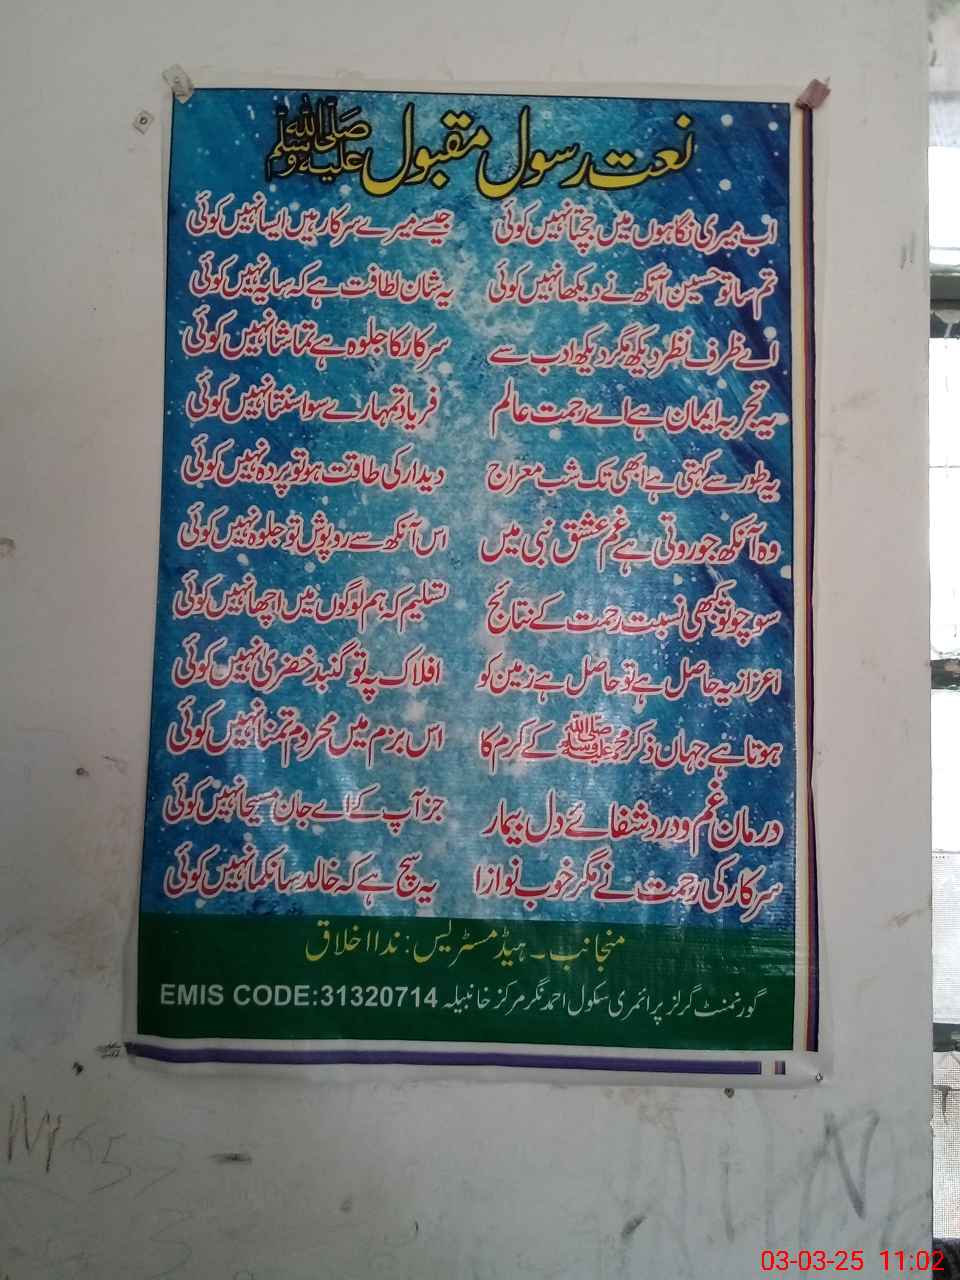 نعت رسول مقبول صلی اللہ علیہ وسلم
اب میری نگاہوں میں جچتا نہیں کوئی جیسے میرے سرکار ہیں ایسا نہیں کوئی
تم سا تو حسین آنکھ نے دیکھا نہیں کوئی یہ شان لطافت ہے کہ سایہ نہیں کوئی
اے ظرف نظر دیکھ مگر دیکھ ادب سے سرکار کا جلوہ ہے تماشا نہیں کوئی
یہ تجربہ ایمان ہے اے رحمت عالم فریاد تمہارے سوا سنتا نہیں کوئی
یہ طور سے کہتی ہے ابھی تک شب معراج دیدار کی طاقت ہو تو پردہ نہیں کوئی
وہ آنکھ جو روتی ہے غم عشق نبی میں اس آنکھ سے روپوش تو جلوہ نہیں کوئی
سوچو تو کبھی نسبت رحمت کے نتائج تسلیم کہ ہم لوگوں میں اچھا نہیں کوئی
اعزاز یہ حاصل ہے تو حاصل ہے زمین کو افلاک پہ تو گنبد خضریٰ نہیں کوئی
ہوتا ہے جہان ذکر محمد صلی اللہ علیہ وسلم کے کرم کا اس بزم میں محروم تمنا نہیں کوئی
درمان غم و درد شفائے دل بیمار جز آپ کے اے جان مسیحا نہیں کوئی
سرکار کی رحمت نے مگر خوب نوازا یہ سچ ہے کہ خالد سا نکما نہیں کوئی
منجانب۔ ہیڈ مسٹریس: ندا اخلاق
گورنمنٹ گرلز پرائمری سکول احمد نگر مرکز خانبیلہ EMIS CODE:31320714
03-03-25 11:02